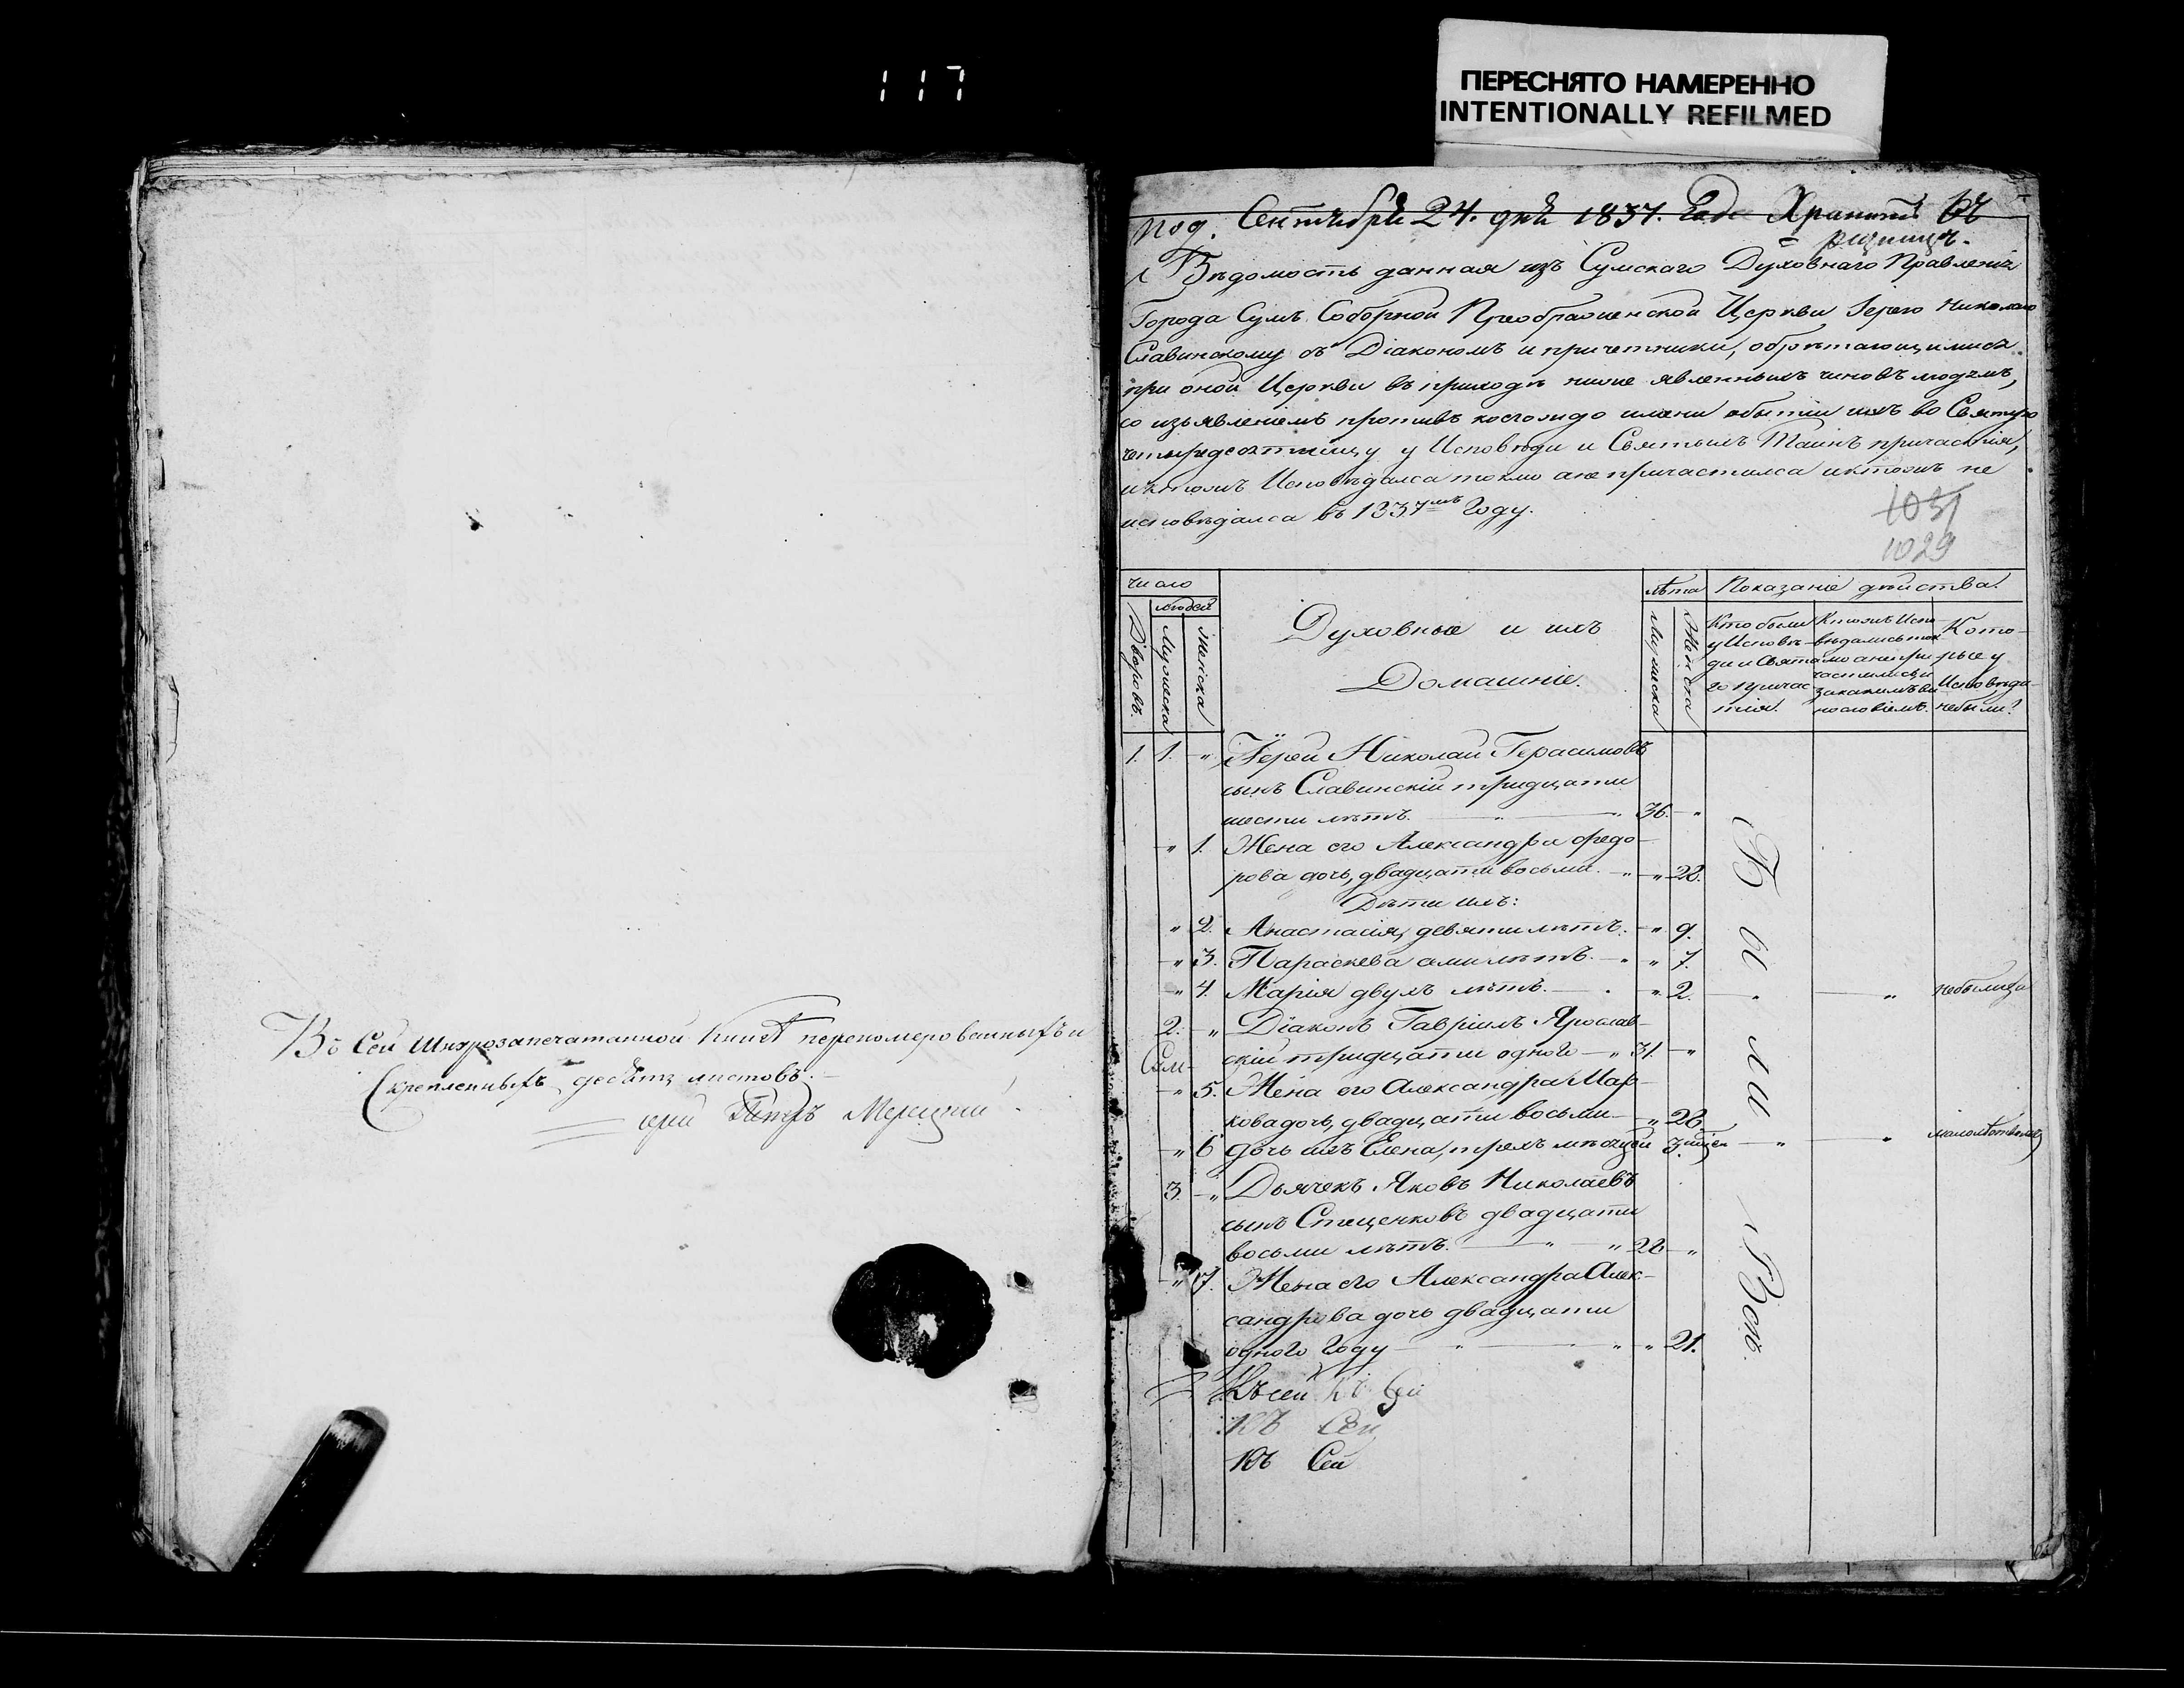 117
ПЕРЕСНЯТО НАМЕРЕННО
INTENTIONALLY REFILMED
Во Сей Шнурозапечатанной книгѣ перенумерованныхъ и
Скрепленныхъ десять листовъ.
іерей Петръ
Под. Сентября 24. дня 1837. Года Хранить въ
ризницѣ.
Вѣдомость данная изъ Сумскаго Духовнаго Правленія
Города Сумъ Соборной Преображенской Церкви Іерею Николаю
Славинскому съ Діакономъ и причетники, обрѣтающимися
при оной Церкви въ приходѣ ниже явленныхъ чиновъ людемъ,
со изъявленіемъ противъ коегождо имени о бытіи ихъ во Святую
четыредесятницу у Исповѣди и Святыхъ Таинъ причастія,
и ктожъ Исповѣдался токмо а не причастился и ктожъ не
исповѣдался въ 1837мъ Году.
1031
1029
Число
людей
Дворовъ.
Мужеска
Женска
Духовные и ихъ
Домашніе.
лѣта
Мужеска
Женска
Показаніе дѣйства.
Кто были
у Исповѣ-
ди и Свята
го причас
тія.
Ктожъ Испо
вѣдались ток
мо а не при
частились и
за какимъ ви
нословіемъ.
Кото-
рые у
Исповѣди
небыли?
1. 1. " Іерей Николай Герасимовъ
сынъ Славинскій тридцати
шести лѣтъ. " " 36. "
" 1. Жена его Александра Ѳедо-
рова дочь, двадцати восьми. " " 28.
Дѣти ихъ:
" 2. Анастасія, девяти лѣтъ. " 9.
" 3. Параскева семи лѣтъ. " " 7.
" 4. Марія двухъ лѣтъ. " 2. " " небыли за
2. " Діаконъ Гавріилъ Ярослав-
скій тридцати одного " 31. "
" 5. Жена его Александра Мар-
кова дочь, двадцати восьми " 28.
" 6 дочь ихъ Елена, трехъ мѣсяцей 3 мѣсяц " " малолѣтствомъ
3. " Дьячекъ Яковъ Николаевъ
сынъ Стеценковъ двадцати
восьми лѣтъ. " " 28 "
" 7. Жена его Александра Алек-
сандрова дочь двадцати
одного году " " " 21.
Были
Всѣ.
Къ сей Къ Сей
Къ Сей
Къ Сей